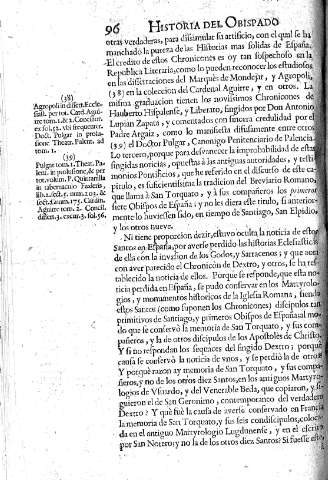 96 HISTORIA DEL OBISPADO
otras verdaderas, para dissimular su artificio, con el qual se ha
manchado la pureza de las Historias mas solidas de España.
El credito de estos Chronicones es oy tan sospechoso en la
Republica Literaria, como lo pueden reconocer los estudiosos
en las dissertaciones del Marquès de Mondejar, y Agropoli,
(38) en la coleccion del Cardenal Aguirre, y en otros. La
misma graduacion tienen los novissimos Chronicones de
Hauberto Hispalense, y Liberato, fingidos por Don Antonio
Lupian Zapata, y comentados con sincera credulidad por el
Padre Argaiz, como lo manifiesta difusamente entre otros
(39) el Doctor Pulgar, Canonigo Penitenciario de Palencia.
Lo tercero, porque para desvanecer la improbabilidad de estas
fingidas noticias, opuestas à las antiguas autoridades, y testi-
monios Pontificios, que he referido en el discurso de este ca-
pitulo, es suficientissima la tradicion del Breviario Romano,
que llama à San Torquato, y à sus compañeros los primeros
siete Obispos de España; y no les diera este titulo, si anterior-
mente lo huviessen sido, en tiempo de Santiago, San Elpidio,
y los otros nueve.
Ni tiene proporcion dezir, estuvo oculta la noticia de estos
Santos en España, por averse perdido las historias Eclesiasticas
de ella con la invasion de los Godos, y Sarracenos; y que
con aver parecido el Chronicon de Dextro, y otros, se ha res-
tablecido la noticia de ellos. Porque se responde, que esta no-
ticia perdida en España, se pudo conservar en los Martyrolo-
gios, y monumentos historicos de la Iglesia Romana, siendo
estos Santos (como suponen los Chronicones) discipulos tan
primitivos de Santiago, y primeros Obispos de España al mo-
do que se conservò la memoria de San Torquato, y sus com-
pañeros, y la de otros discipulos de los Apostoles de Christo.
Y si no respondan los sequaces del fingido Dextro; por què
causa se conservò la noticia de unos, y se perdiò la de otros?
Y por què razon ay memoria de San Torquato, y sus compa-
ñeros, y no de los otros diez Santos, en los antiguos Martyro-
logios de Usuardo, y del Venerable Beda, que copiaron, y si-
guieron el de San Geronimo, contemporaneo del verdadero
Dextro? Y què fue la causa de averse conservado en Francia
la memoria de San Torquato, y sus seis condiscipulos, coloca-
da en el antiguo Martyrologio Lugdunense, y en el escrito
por San Notero; y no la de los otros diez Santos? Si fuesse esto
(38)
Agropoli in dissert. Eccle-
siast. per tot. Card. Agui-
rre tom. 1.
Doct. Pulgar in præfa-
tione Theatr. Palent. ad
tom. 1.
(39)
Pulgar tom. 1. Theat. Pa-
lent. in præfatione, & per
tot. volum. P. Quintanilla
in tabernaculo Foederis,
Aguirre tom. 2. Concil.